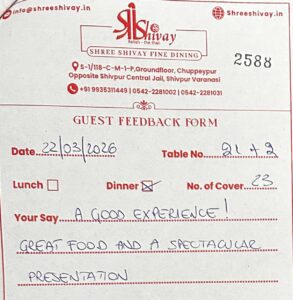 info@shreeshivay.in
Shreeshivay.in
Shivay
SHREE SHIVAY FINE DINING
2588
S-1/118-C-M-1-P,Groundfloor, Chuppeypur
Opposite Shivpur Central Jail, Shivpur Varanasi
+91 9935311449 | 0542-2281002 | 0542-2281031
GUEST FEEDBACK FORM
Date 22/03/2026 Table No. 21+2
Lunch Dinner No. of Cover 23
Your Say A GOOD EXPERIENCE!
GREAT FOOD AND A SPECTACULAR
PRESENTATION